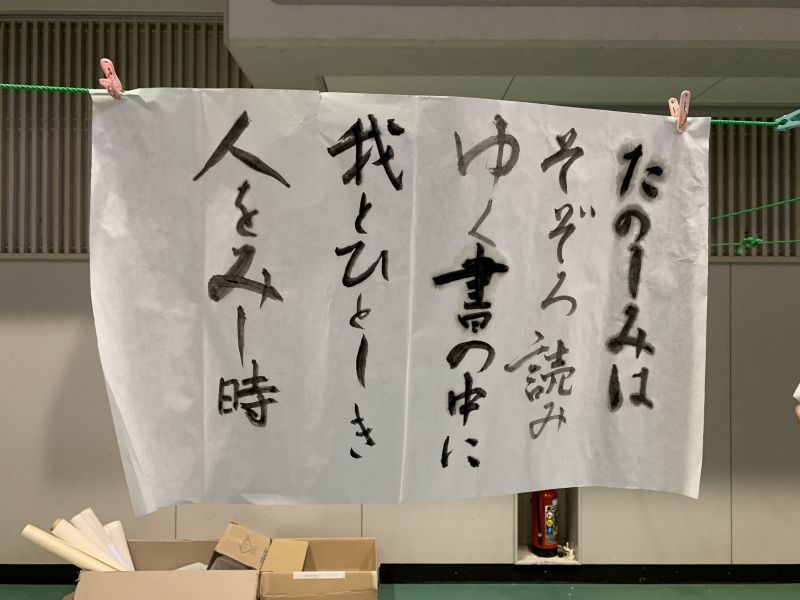 たのしみは
そぞろ読み
ゆく書の中に
我とひとしき
人をみし時